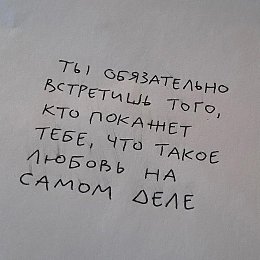 ТЫ ОБЯЗАТЕЛЬНО
ВСТРЕТИШЬ ТОГО,
КТО ПОКАЖЕТ
ТЕБЕ, ЧТО ТАКОЕ
ЛЮБОВЬ НА
САМОМ ДЕЛЕ